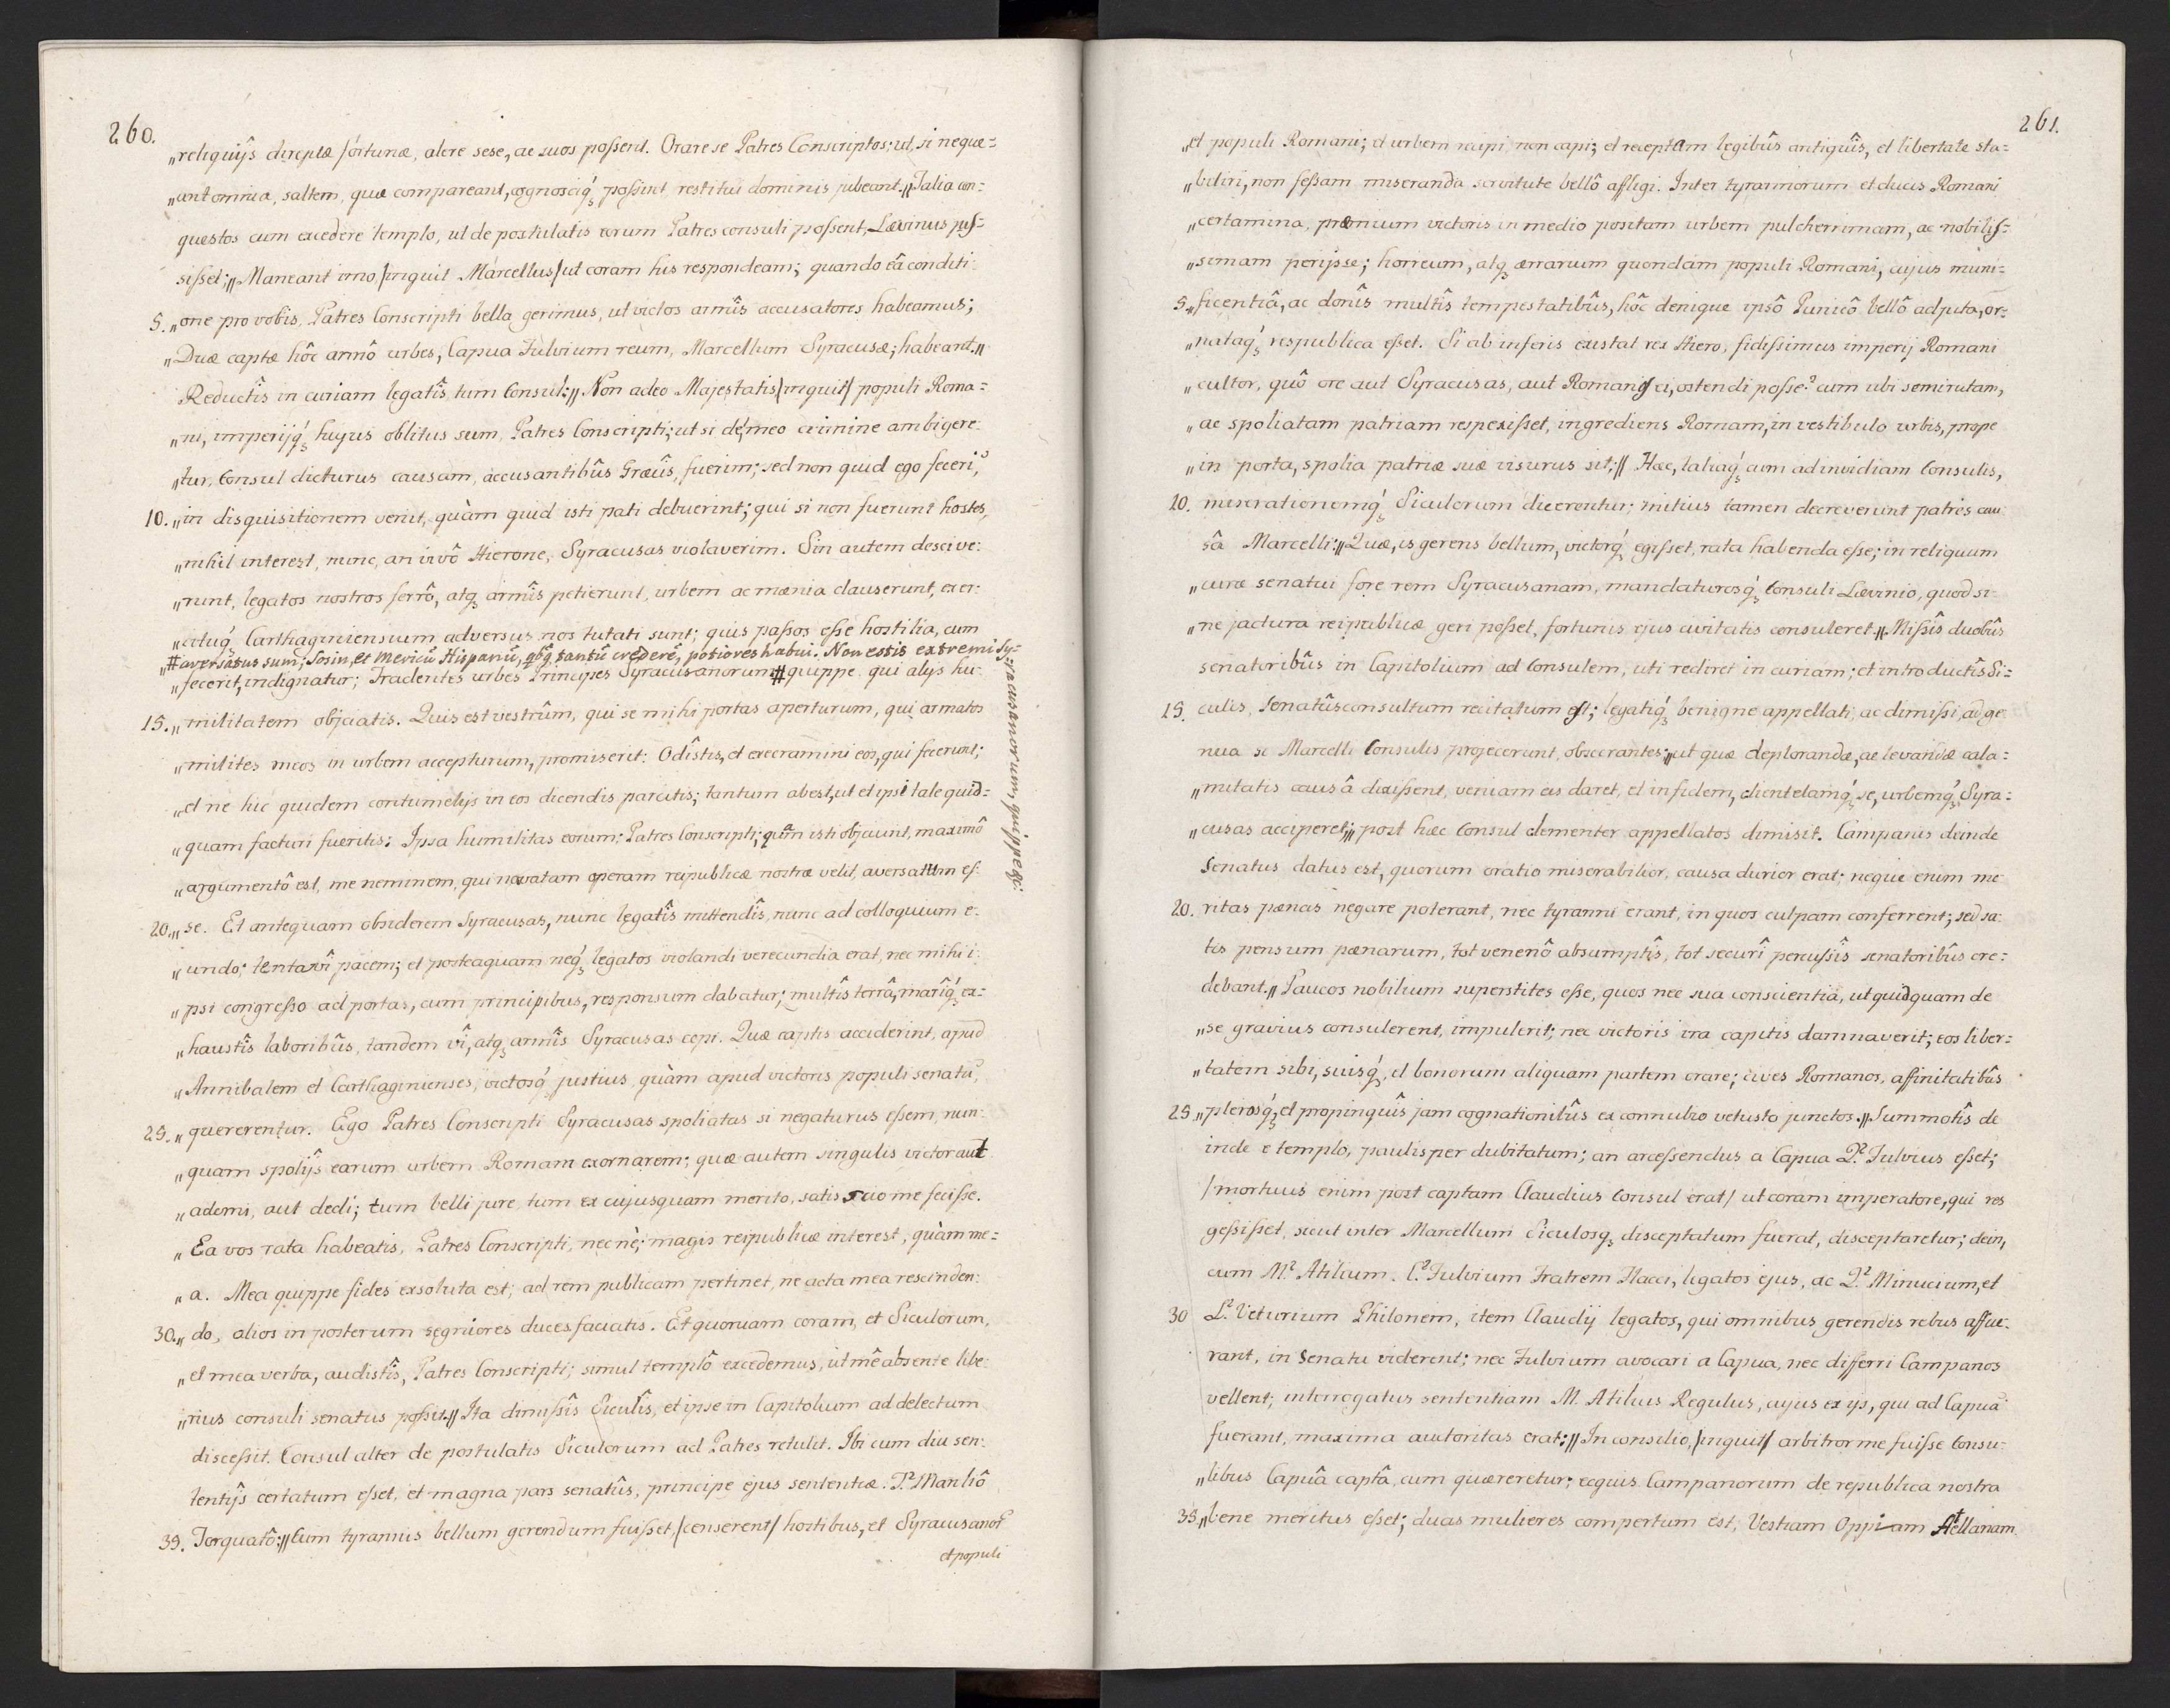 260.
„religuijs direptæ fortunæ, alere sese, ac suos possent. Orare se Patres Conscriptos; ut, si neque=
„ant omnia, saltem, quæ compareant, cognosciq́; possint restitui dominis jubeant.„ Talia con=
questos cum excedere templo, ut de postulatis eorum Patres consuli possent, Lævinus jus=
sisset; „Maneant imo /inquit Marcellus/ ut coram his respondeam; quando eâ conditi=
5. „one pro vobis, Patres Conscripti bella gerimus, ut victos armîs accusatores habeamus;
„Duæ captæ hôc annô urbes, Capua Fulvium reum, Marcellum Syracusæ; habeant.„
Reductîs in curiam legatîs, tum Consul: „Non adeo Majestatis /inquit/ populi Roma=
„ni, imperijq́; hujus oblitus sum, Patres Conscripti; ut si de meo crimine ambigere=
„tur, Consul dicturus causam, accusantibûs Græcîs, fuerim; sed non quid ego feceri,
10. „in disquisitionem venit, quàm quid isti pati debuerint; qui si non fuerunt hostes,
„nihil interest, nunc, an vivô Hierone, Syracusas violaverim. Sin autem descive=
„runt, legatos nostros ferrô, atq; armîs petierunt, urbem ac mœnia clauserunt, exer=
„cituq́; Carthaginiensium adversus nos tutati sunt; quis passos esse hostilia, cum
„# aversatus sum; Sosin, et Mericũ Hispanũ, qbq; tantũ crederẽ, potiores habui. Non estis extremi Sy=
racusanorum, quippe &c:
„fecerit, indignatur; Tradentes urbes Principes Syracusanorum # quippe qui alijs hu=
15. „militatem objciatis. Quis est vestrûm, qui se mihi portas aperturum, qui armatos
„milites meos in urbem accepturum, promiserit: Odîstis, et execramini eos, qui fecerunt;
„et ne hic quidem contumelijs in eos dicendis parcitis; tantum abest, ut et ipsi tale quid=
„quam facturi fueritis: Ipsa humilitas eorum; Patres Conscripti; quam isti objciunt, maximô
„argumentô est, me neminem, qui navatam operam reipublicæ nostræ velit, aversatum es=
20. „se. Et antequam obsiderem Syracusas, nunc legatîs mittendîs, nunc ad colloquium e=
„undo; tentavi pacem; et posteaquam neq́; legatos violandi verecundia erat, nec mihi i=
„psi congresso ad portas, cum principibus, responsum dabatur; multîs terrâ, marîq́; ex=
„haustîs laboribûs, tandem vî, atq; armîs Syracusas cepi. Quæ captis acciderint, apud
„Annibalem et Carthaginienses, victosq́; justius, quàm apud victoris populi senatũ,
25. „quererentur. Ego Patres Conscripti Syracusas spoliatas si negaturus essem, nun=
„quam spolijs earum urbem Romam exornarem; quæ autem singulis victor aut
„ademi, aut dedi; tum belli jure, tum ex cujusquam merito, satis scio me fecisse.
„Ea vos rata habeatis, Patres Conscripti, nec nè; magis reipublicæ interest, quàm me=
„a. Mea quippe fides exsoluta est; ad rem publicam pertinet, ne acta mea rescinden=
30. „do, alios in posterum segniores duces faciatis. Et quoniam coram, et Siculorum,
„et mea verba, audistîs, Patres Conscripti; simul templô excedemus, ut mê absente libe=
„rius consuli senatus possit.„ Ita dimissîs Siculîs, et ipse in Capitolium ad delectum
discessit. Consul alter de postulatis Siculorum ad Patres retulit. Ibi cum diu sen=
tentijs certatum esset, et magna pars senatûs, principe ejus sententiæ. T? Manliô
35. Torquatô: „Cum tyrannis bellum gerendum fuisset, /censerent/ hostibus, et Syracusanor̃
et populi
261.
„et populi Romani; et urbem recipi non capi; et receptam legibûs antiquîs, et libertate sta=
„biliri, non fessam miseranda servitute bellô affligi. Inter tyrannorum et ducis Romani
„certamina, præmium victoris in medio positam urbem pulcherrimam, ac nobilis=
„simam perijsse; horreum, atq; ærrarium quondam populi Romani, cujus muni=
5. „ficentiâ, ac donîs multîs tempestatibûs, hôc denique ipsô Punicô bellô adjuta, or=
„nataq́; respublica esset. Si ab inferis existat rex Hiero, fidissimus imperij Romani
„cultor, quô ore aut Syracusas, aut Romam ei, ostendi posse? cum ubi semirutam,
„ac spoliatam patriam respexisset, ingrediens Romam, in vestibulo urbis, prope
„in porta, spolia patriæ suæ visurus sit;„ Hæc, taliaq́; cum ad invidiam Consulis,
10. miserationemq́; Siculorum dicerentur; mitius tamen decreverunt patres cau
sâ Marcelli: „Quæ, is gerens bellum, victorq́; egisset, rata habenda esse; in reliquum
„curæ senatui fore rem Syracusanam, mandaturosq́; Consuli Lævinio, quod si=
„ne jactura reipublicæ geri posset, fortunis ejus civitatis consuleret.„ Missîs duobûs
senatoribûs in Capitolium ad Consulem, uti rediret in curiam; et introductîs Si=
15. culis, Senatûsconsultum recitatum est; legatiq́; benigne appellati, ac dimissi, ad ge
nua se Marcelli Consulis projecerunt, obsecrantes; „ut quæ deplorandæ, ac levandæ cala=
„mitatis causâ dixissent, veniam eis daret, et in fidem, clientelamq́; se, urbemq́; Syra=
„cusas acciperet;„ post hæc Consul clementer appellatos dimisit. Campanis deinde
Senatus datus est, quorum oratio miserabilior, causa durior erat; neque enim me
20. ritas pœnas negare poterant, nec tyranni erant, in quos culpam conferrent; sed sa=
tis pensum pœnarum, tot venenô absumptîs, tot securî percussîs senatoribûs cre=
debant.„ Paucos nobilium superstites esse, quos nec sua conscientia, ut quidquam de
„se gravius consulerent, impulerit; nec victoris ira capitis damnaverit; eos liber=
„tatem sibi, suisq́;, et bonorum aliquam partem orare; cives Romanos, affinitatibûs
25. „plerosq́; et propinquîs jam cognationibûs ex connubio vetusto junctos.„ Summotîs de
inde e templo, paulisper dubitatum; an arcessendus a Capua Q? Fulvius esset;
/mortuus enim post captam Claudius Consul erat/ ut coram imperatore, qui res
gessisset, sicut inter Marcellum Siculosq; disceptatum fuerat, disceptaretur; dein,
cum M? Atilium. C? Fulvium Fratrem Flacci, legatos ejus, ac Q? Minucium, et
30 L? Veturium Philonem, item Claudij legatos, qui omnibus gerendis rebus affue=
rant, in Senatu viderent; nec Fulvium avocari a Capua, nec differri Campanos
vellent; interrogatus sententiam M. Atilius Regulus, cujus ex ijs, qui ad Capuã
fuerant, maxima auctoritas erat: „In consilio, /inquit/ arbitror me fuisse Consu=
„libus Capuâ captâ, cum quæreretur; ecquis Campanorum de republica nostra
35. „bene meritus esset; duas mulieres compertum est, Vestiam Oppiam Atellanam.